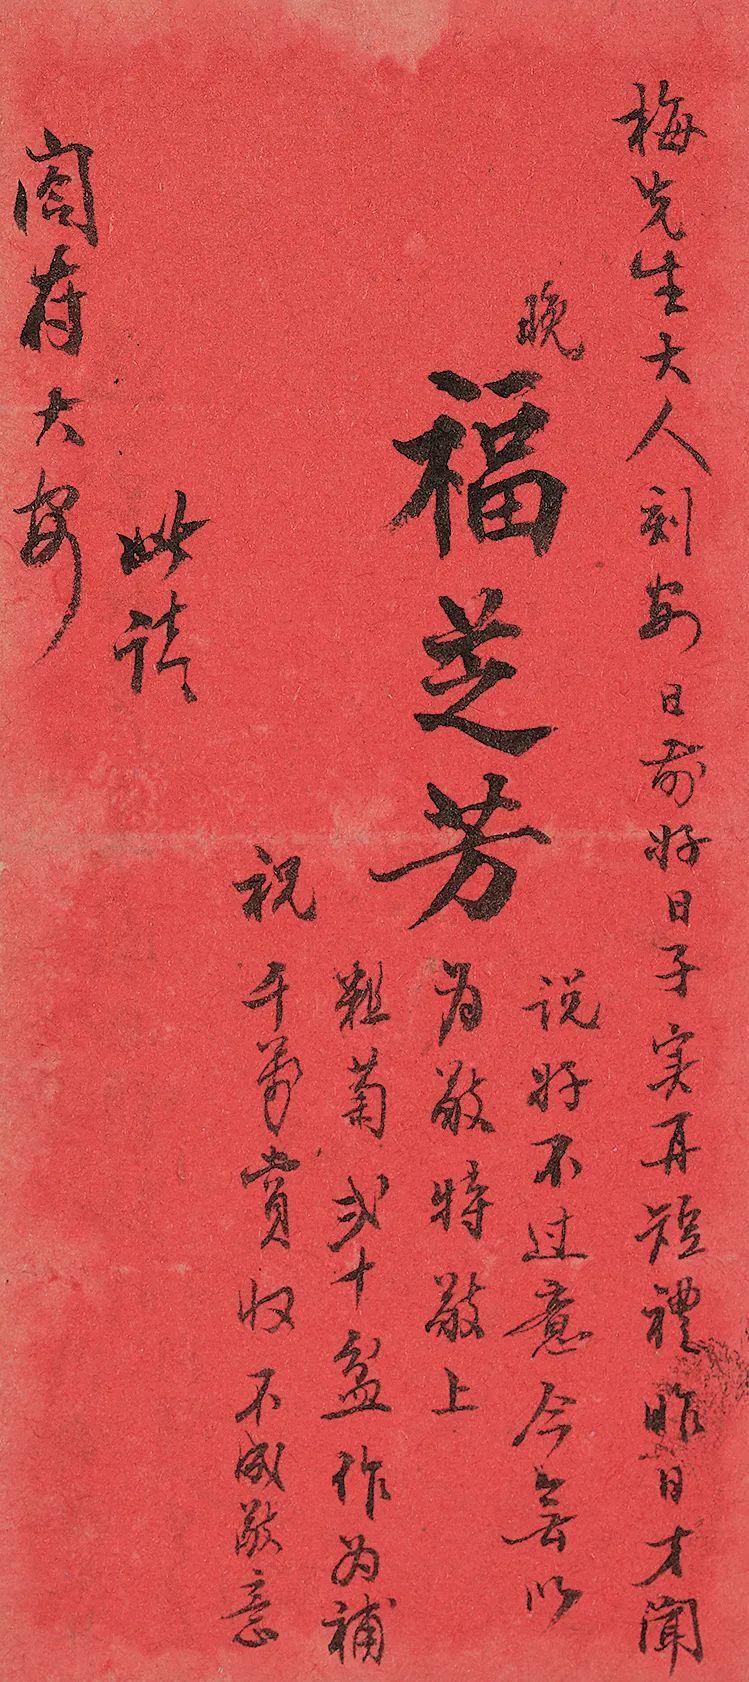 梅先生大人刻安日前好日子实再短禮昨日才聞
说好不过意今無以
为敬特敬上
粗菊弍十盆作为補
祝千萬賞收不成敬意
此请
阁府大安
晚
福芝芳